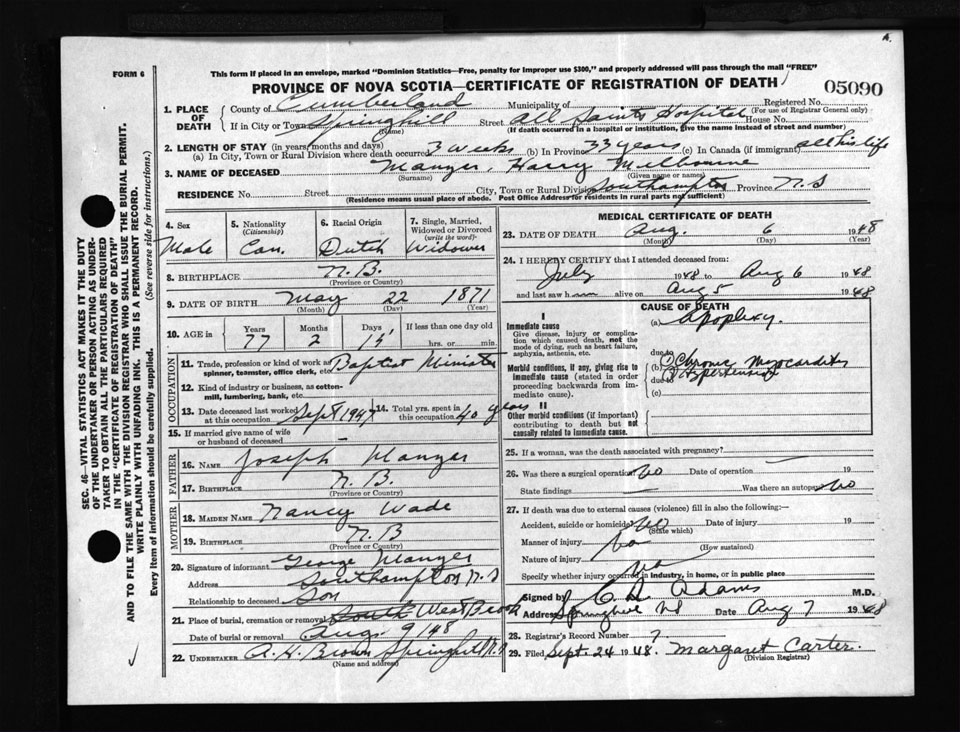 FORM 6
This form if placed in an envelope, marked "Dominion Statistics—Free, penalty for improper use $300," and properly addressed will pass through the mail "FREE"
PROVINCE OF NOVA SCOTIA—CERTIFICATE OF REGISTRATION OF DEATH
05090
1. PLACE OF DEATH
County of Cumberland Municipality of Registered No.
(For use of Registrar General only)
If in City or Town Springhill Street All Saints Hospital House No.
(Name) (If death occurred in a hospital or institution, give the name instead of street and number)
2. LENGTH OF STAY (in years, months and days)
(a) In City, Town or Rural Division where death occurred 3 weeks (b) In Province 33 years (c) In Canada (if immigrant) all his life
3. NAME OF DECEASED Manzer, Harry Melbourne
(Surname) (Given name or names)
RESIDENCE No. Street City, Town or Rural Division Southampton Province N.S
(Residence means usual place of abode. Post Office Address for residents in rural parts not sufficient)
4. Sex Male
5. Nationality (Citizenship) Can.
6. Racial Origin Dutch
7. Single, Married, Widowed or Divorced (write the word) Widower
8. BIRTHPLACE N.B.
(Province or Country)
9. DATE OF BIRTH May 22 1871
(Month) (Day) (Year)
10. AGE in Years Months Days If less than one day old
77 2 15 hrs. or min.
OCCUPATION
11. Trade, profession or kind of work as spinner, teamster, office clerk, etc. Baptist Minister
12. Kind of industry or business, as cotton-mill, lumbering, bank, etc.
13. Date deceased last worked at this occupation Sept 1947
14. Total yrs. spent in this occupation 40 years
15. If married give name of wife or husband of deceased —
FATHER
16. NAME Joseph Manzer
17. BIRTHPLACE N.B.
(Province or Country)
MOTHER
18. MAIDEN NAME Nancy Wade
19. BIRTHPLACE N.B
(Province or Country)
20. Signature of informant George Manzer
Address Southampton N.S
Relationship to deceased Son
21. Place of burial, cremation or removal South West Brook
Date of burial or removal Aug. 9/48
22. UNDERTAKER A.H. Brown Springhill N.S
(Name and address)
MEDICAL CERTIFICATE OF DEATH
23. DATE OF DEATH Aug. 6 1948
(Month) (Day) (Year)
24. I HEREBY CERTIFY that I attended deceased from:
July 1948 to Aug 6 1948
and last saw him alive on Aug 5 1948
CAUSE OF DEATH
I
Immediate cause
Give disease, injury or complication which caused death, not the mode of dying, such as heart failure, asphyxia, asthenia, etc.
(a) Apoplexy.
due to
Morbid conditions, if any, giving rise to immediate cause (stated in order proceeding backwards from immediate cause).
(b) 1) Chronic Myocarditis
2) Hypertension
due to
(c)
II
Other morbid conditions (if important) contributing to death but not causally related to immediate cause.
25. If a woman, was the death associated with pregnancy? —
26. Was there a surgical operation? No Date of operation 19
State findings Was there an autopsy? No
27. If death was due to external causes (violence) fill in also the following:—
Accident, suicide or homicide? No Date of injury 19
(State which)
Manner of injury No
(How sustained)
Nature of injury
Specify whether injury occurred in industry, in home, or in public place No
Signed by Adams M.D.
Address Springhill NS Date Aug 7 1948
28. Registrar's Record Number 7.
29. Filed Sept. 24 1948. Margaret Carter.
(Division Registrar)
SEC. 46—VITAL STATISTICS ACT MAKES IT THE DUTY
OF THE UNDERTAKER OR PERSON ACTING AS UNDER-
TAKER TO OBTAIN ALL THE PARTICULARS REQUIRED
IN THE "CERTIFICATE OF REGISTRATION OF DEATH"
AND TO FILE THE SAME WITH THE DIVISION REGISTRAR WHO SHALL ISSUE THE BURIAL PERMIT.
WRITE PLAINLY WITH UNFADING INK. THIS IS A PERMANENT RECORD.
Every item of information should be carefully supplied. (See reverse side for instructions.)